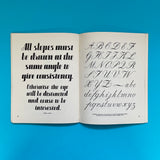 All slopes must
be drawn at the
same angle to
give consistency.
Otherwise the eye
will be distracted
and cease to be
interested.
A B C D E F
G H I J K L M
N O P Q R S T
U V W X Y Z
a b c d e f g h i j k l m
n o p q r s t u v w x y z